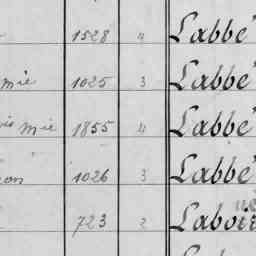 1528 4 Labbé
mie 1025 3 Labbé
mie 1855 4 Labbé
1026 3 Labbé
723 2